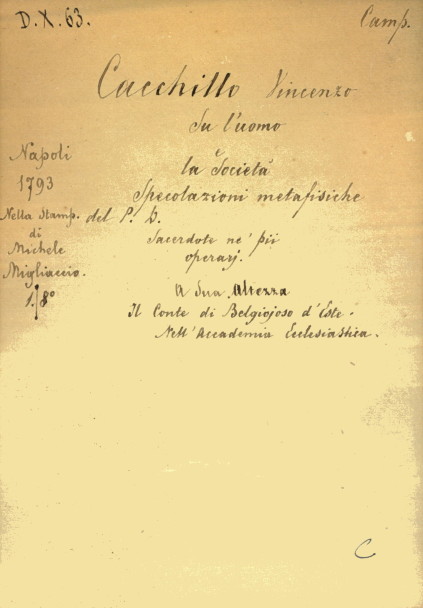 D.X.63.
Camp.
Cacchillo Vincenzo
Su l'uomo
e
la Società
Specolazioni metafisiche
del P. D.
Sacerdote ne' pii
operarj.
A Sua Altezza
Il Conte di Belgiojoso d'Este.
Nell'Accademia Ecclesiastica.
Napoli
1793
Nella Stamp.
di
Michele
Migliaccio.
1./8º
C